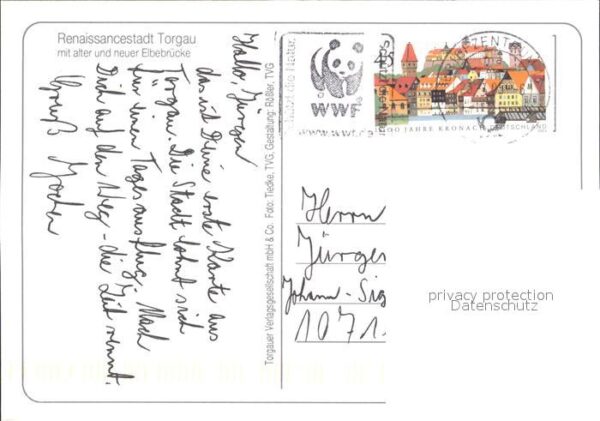 Renaissancestadt Torgau
mit alter und neuer Elbebrücke
Hallo Jürgen,
das ist Deine erste Karte aus
Torgau. Die Stadt lohnt sich
für einen Tagesausflug. Mach
Dich auf den Weg - die Zeit rennt.
Gruß Jochen
Torgauer Verlagsgesellschaft mbH & Co. Foto: Tiedke, TVG, Gestaltung: Rößler, TVG
WWF
www.wwf.de
45
JAHRE KRONACH DEUTSCHLAND
Herrn
Jürgen
Johann-Sig
1071
privacy protection
Datenschutz